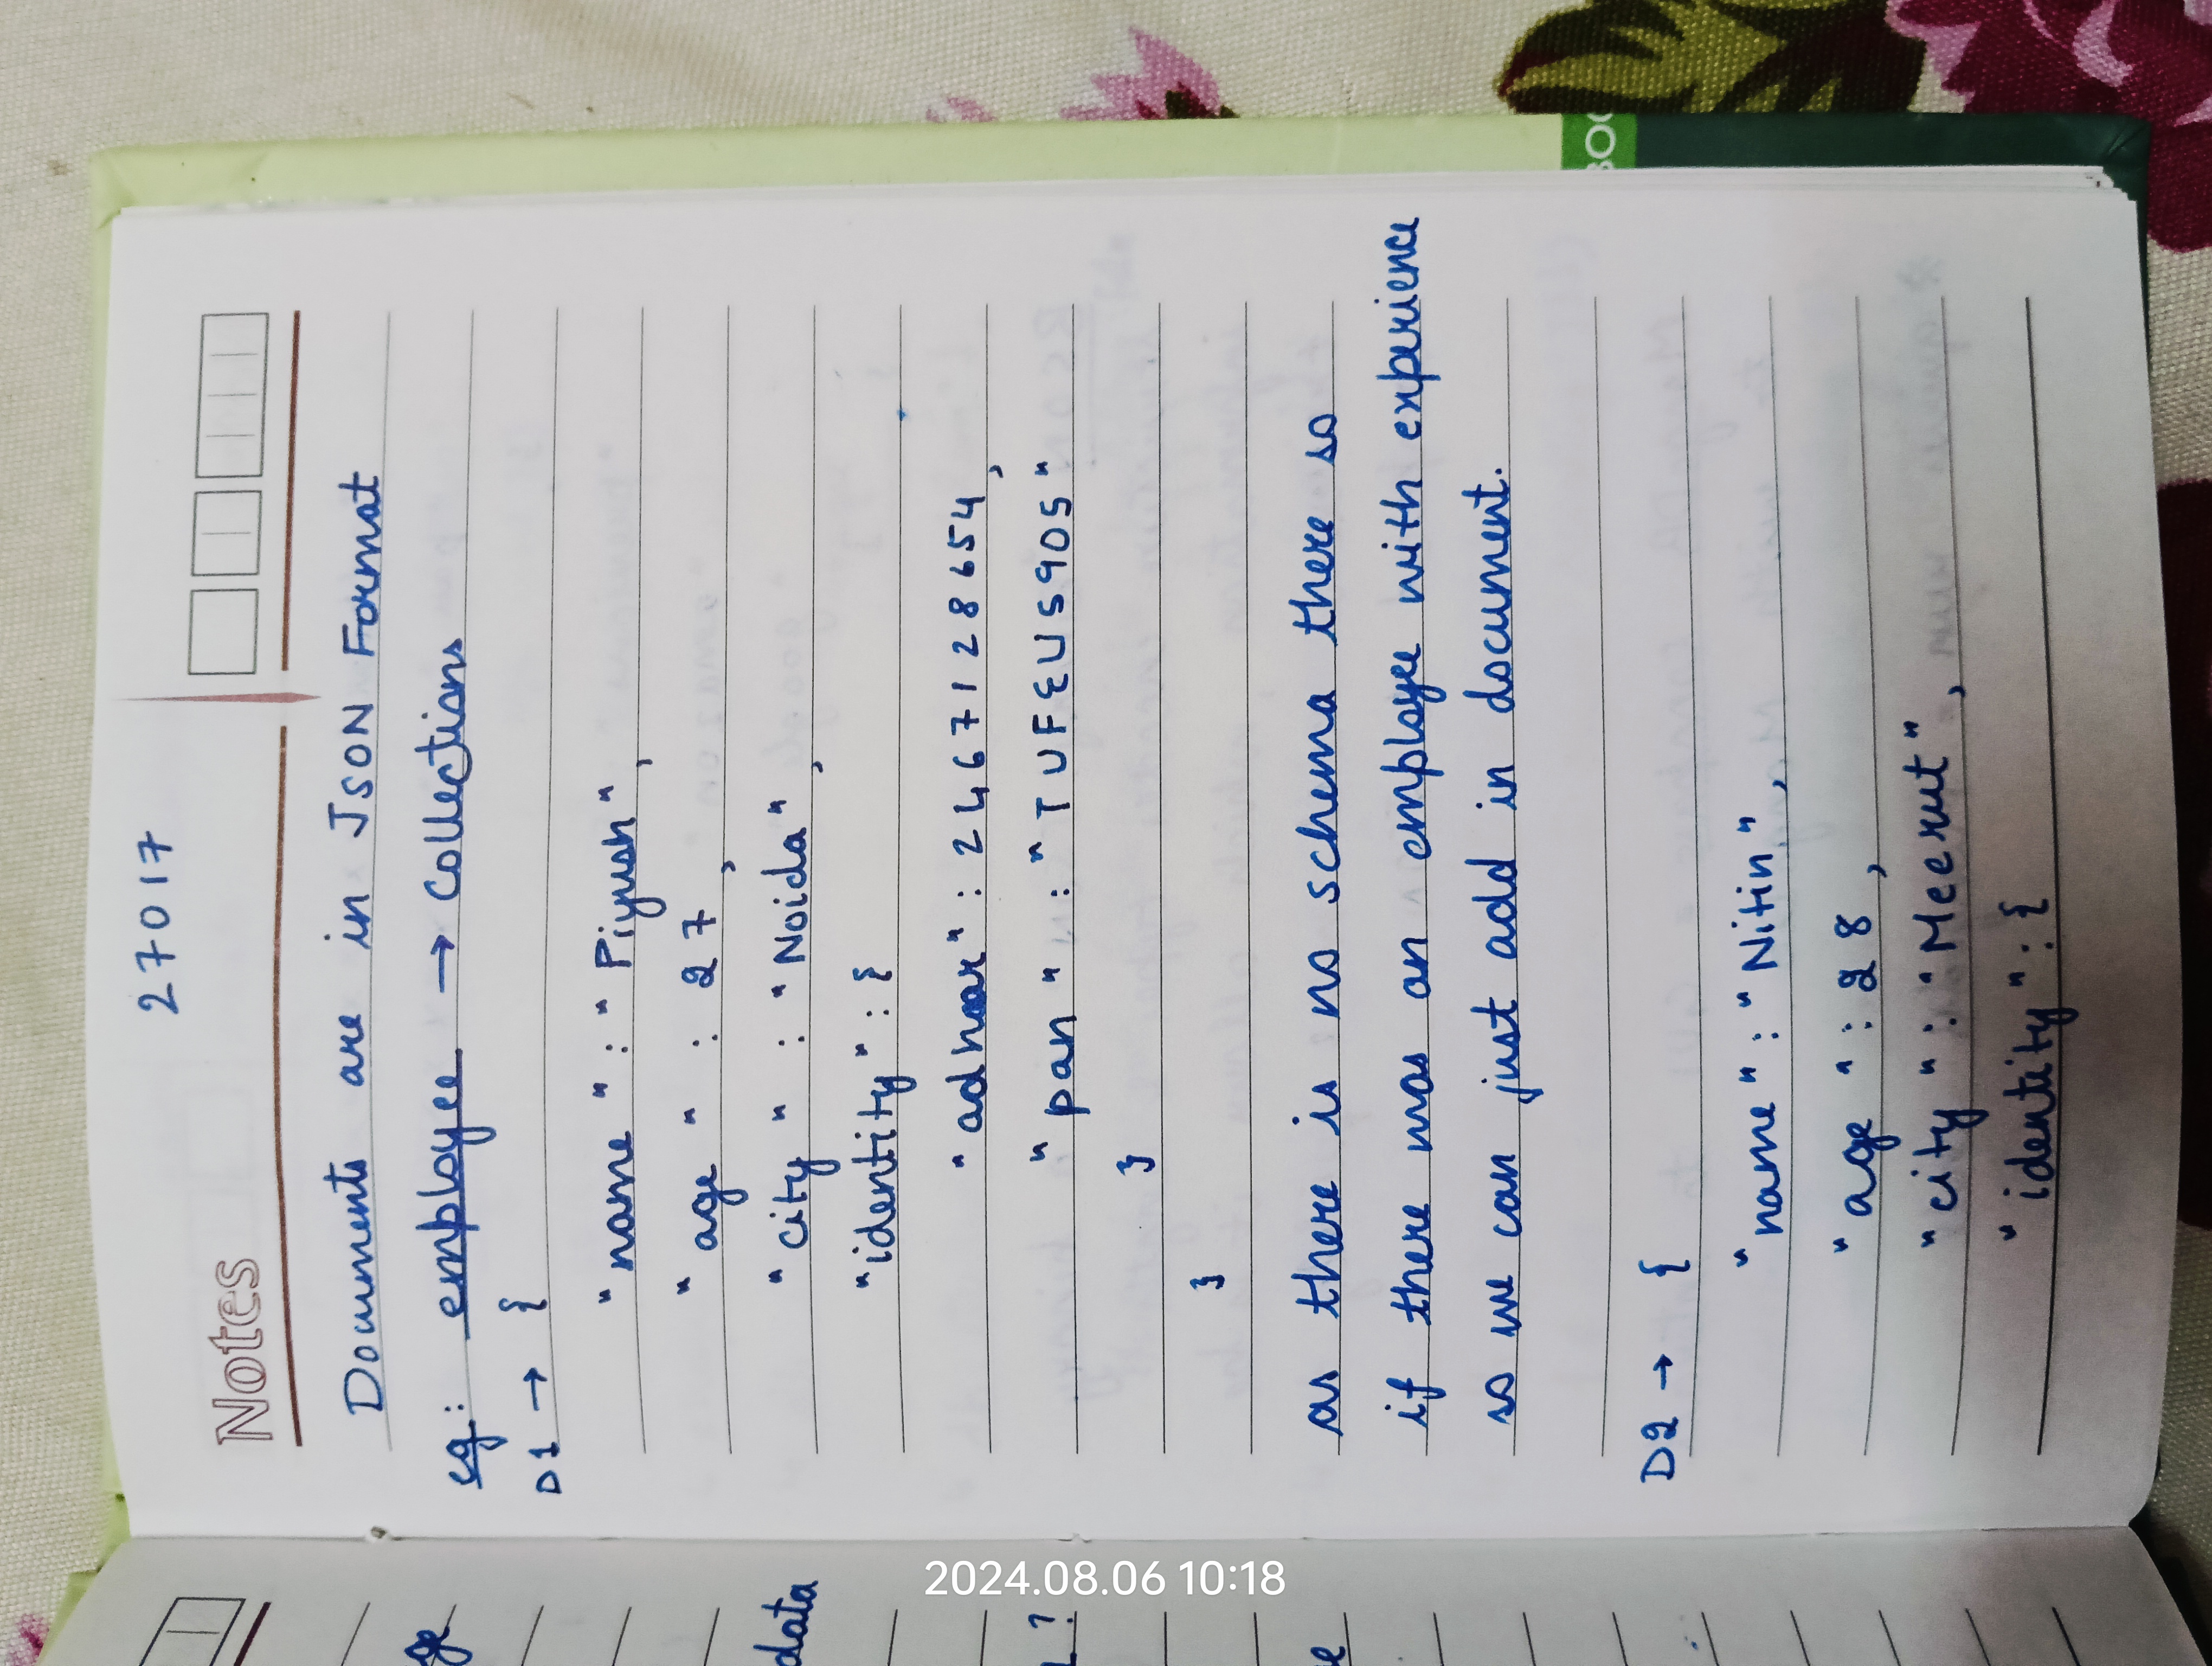 27017
Notes
Documents are in JSON Format
eg: employee → Collections
D1 → {
"name" : "Piyush",
"age" : 27,
"city" : "Noida",
"identity" : {
"adhaar" : 2467128654,
"pan" : "TUFEUS905"
}
}
as there is no schema there so
if there was an employee with experience
so we can just add in document.
D2 → {
"name" : "Nitin",
"age" : 28,
"city" : "Meerut",
"identity" : {
data
2024.08.06 10:18